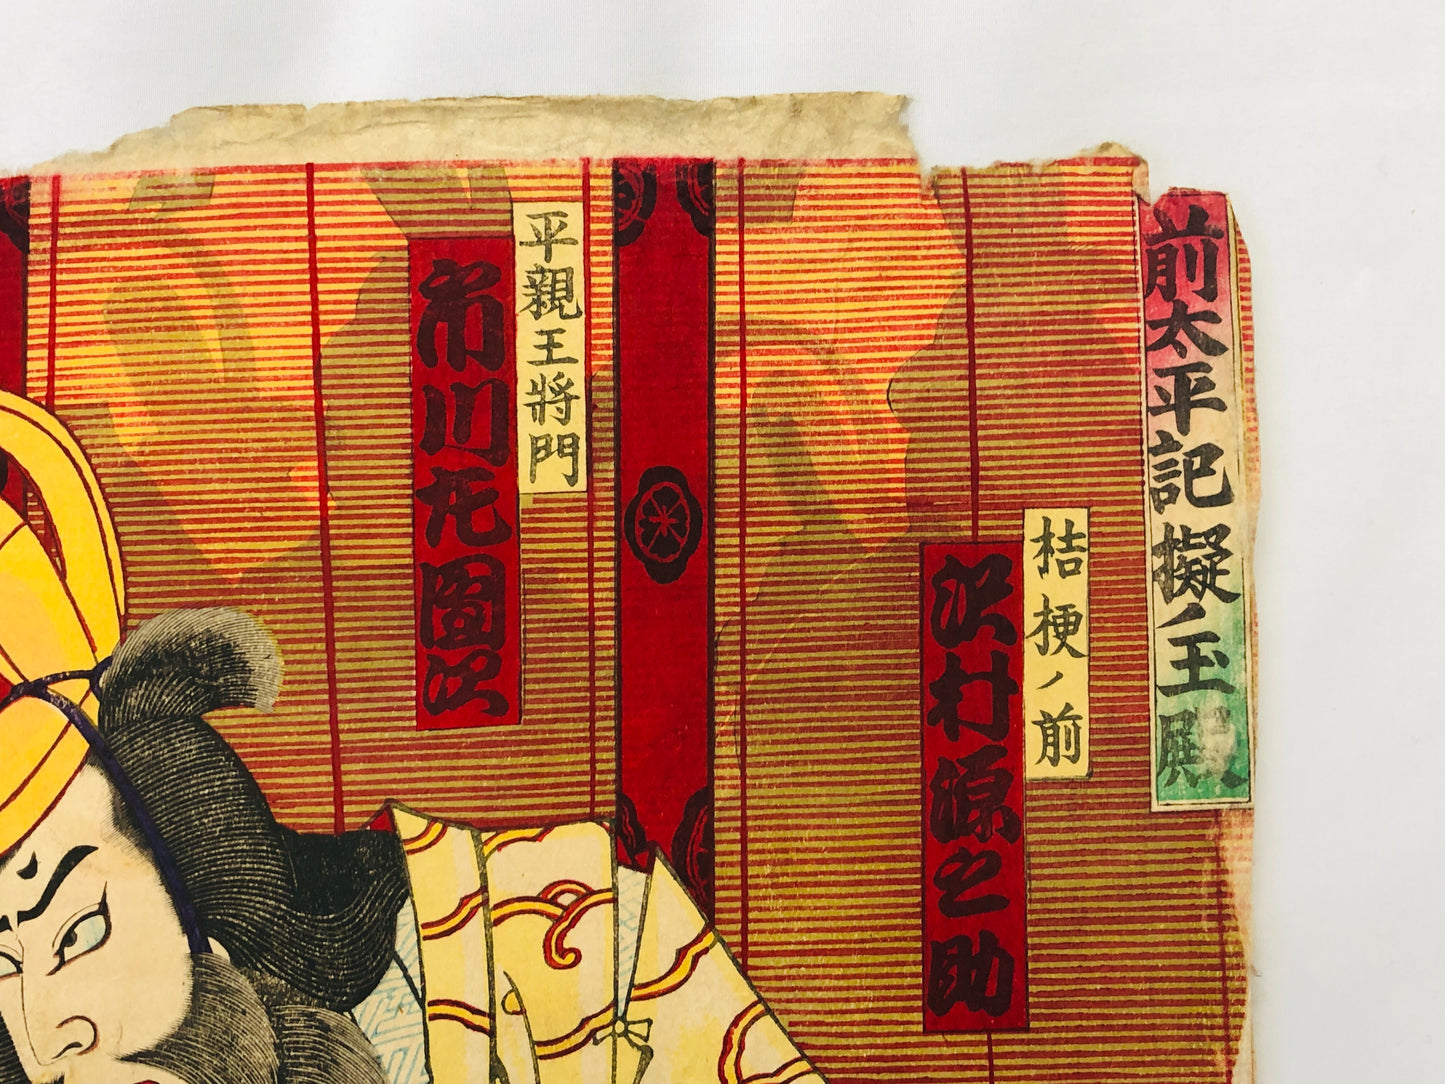 前太平記擬ノ玉殿
桔梗ノ前
沢村源之助
平親王將門
市川左團次